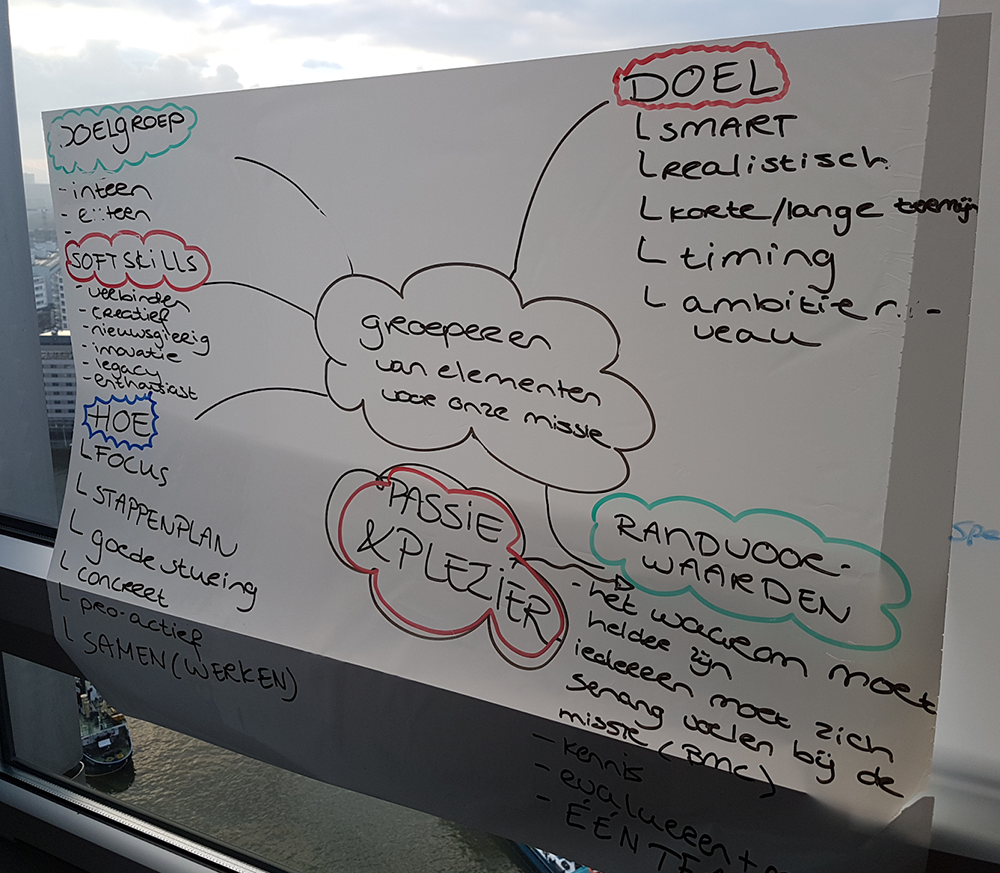 DOELGROEP
- inteen
- e::teen
-
SOFTSKillS
- verbinden
- creatief
- nieuwsgierig
- innovatie
- legacy
- enthousiast
HOE
L FOCUS
L STAPPENPLAN
L goede sturing
L concreet
L pro-actief
L SAMEN (WERKEN)
groeperen
van elementen
voor onze missie
PASSIE
& PLEZIER
DOEL
L SMART
L realistisch
L korte/lange termijn
L timing
L ambitie ni-
veau
RANDVOOR-
WAARDEN
- het waarom moet
helder zijn
- iedereen moet zich
senang voelen bij de
missie (BMC)
- kennis
- evalueren +
- ÉÉN
Spe